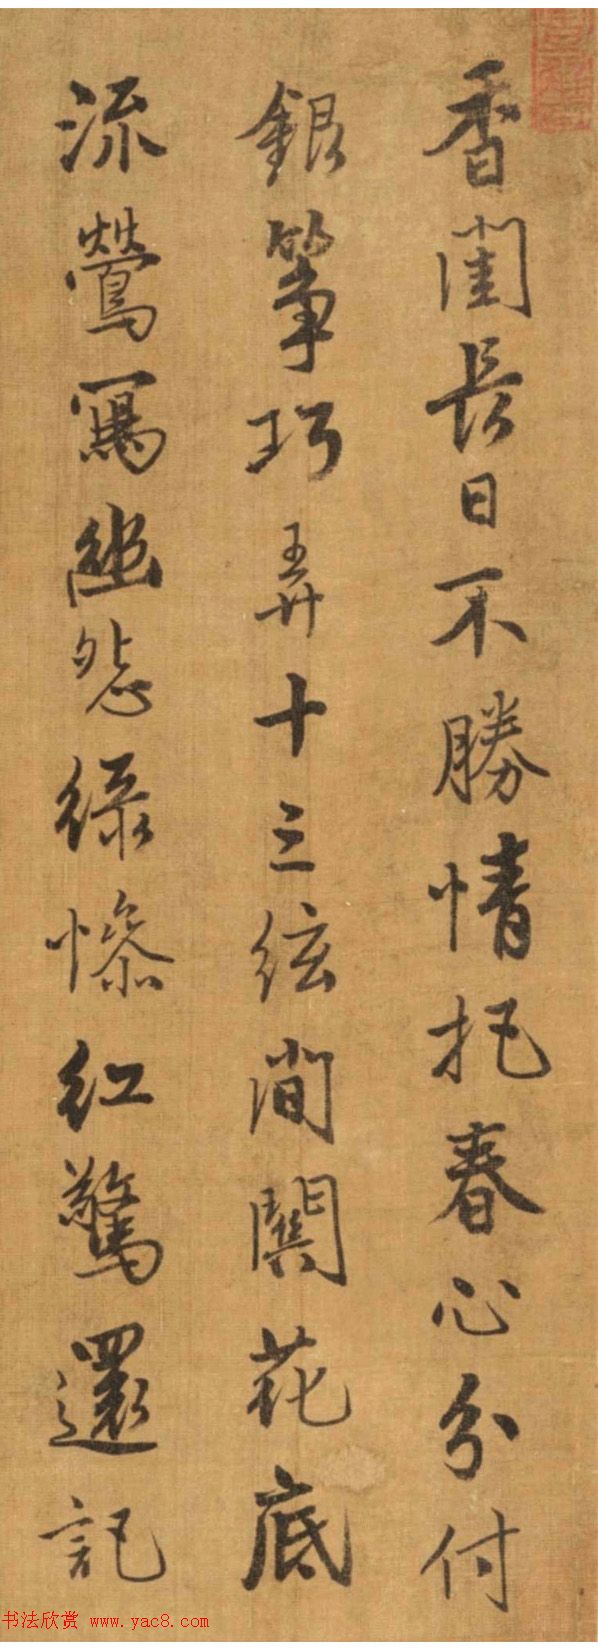 香閨長日不勝情把春心分付
銀箏巧弄十三絃間關花底
流鶯寫幽愁綠慘紅驚還記
书法欣赏 www.yac8.com